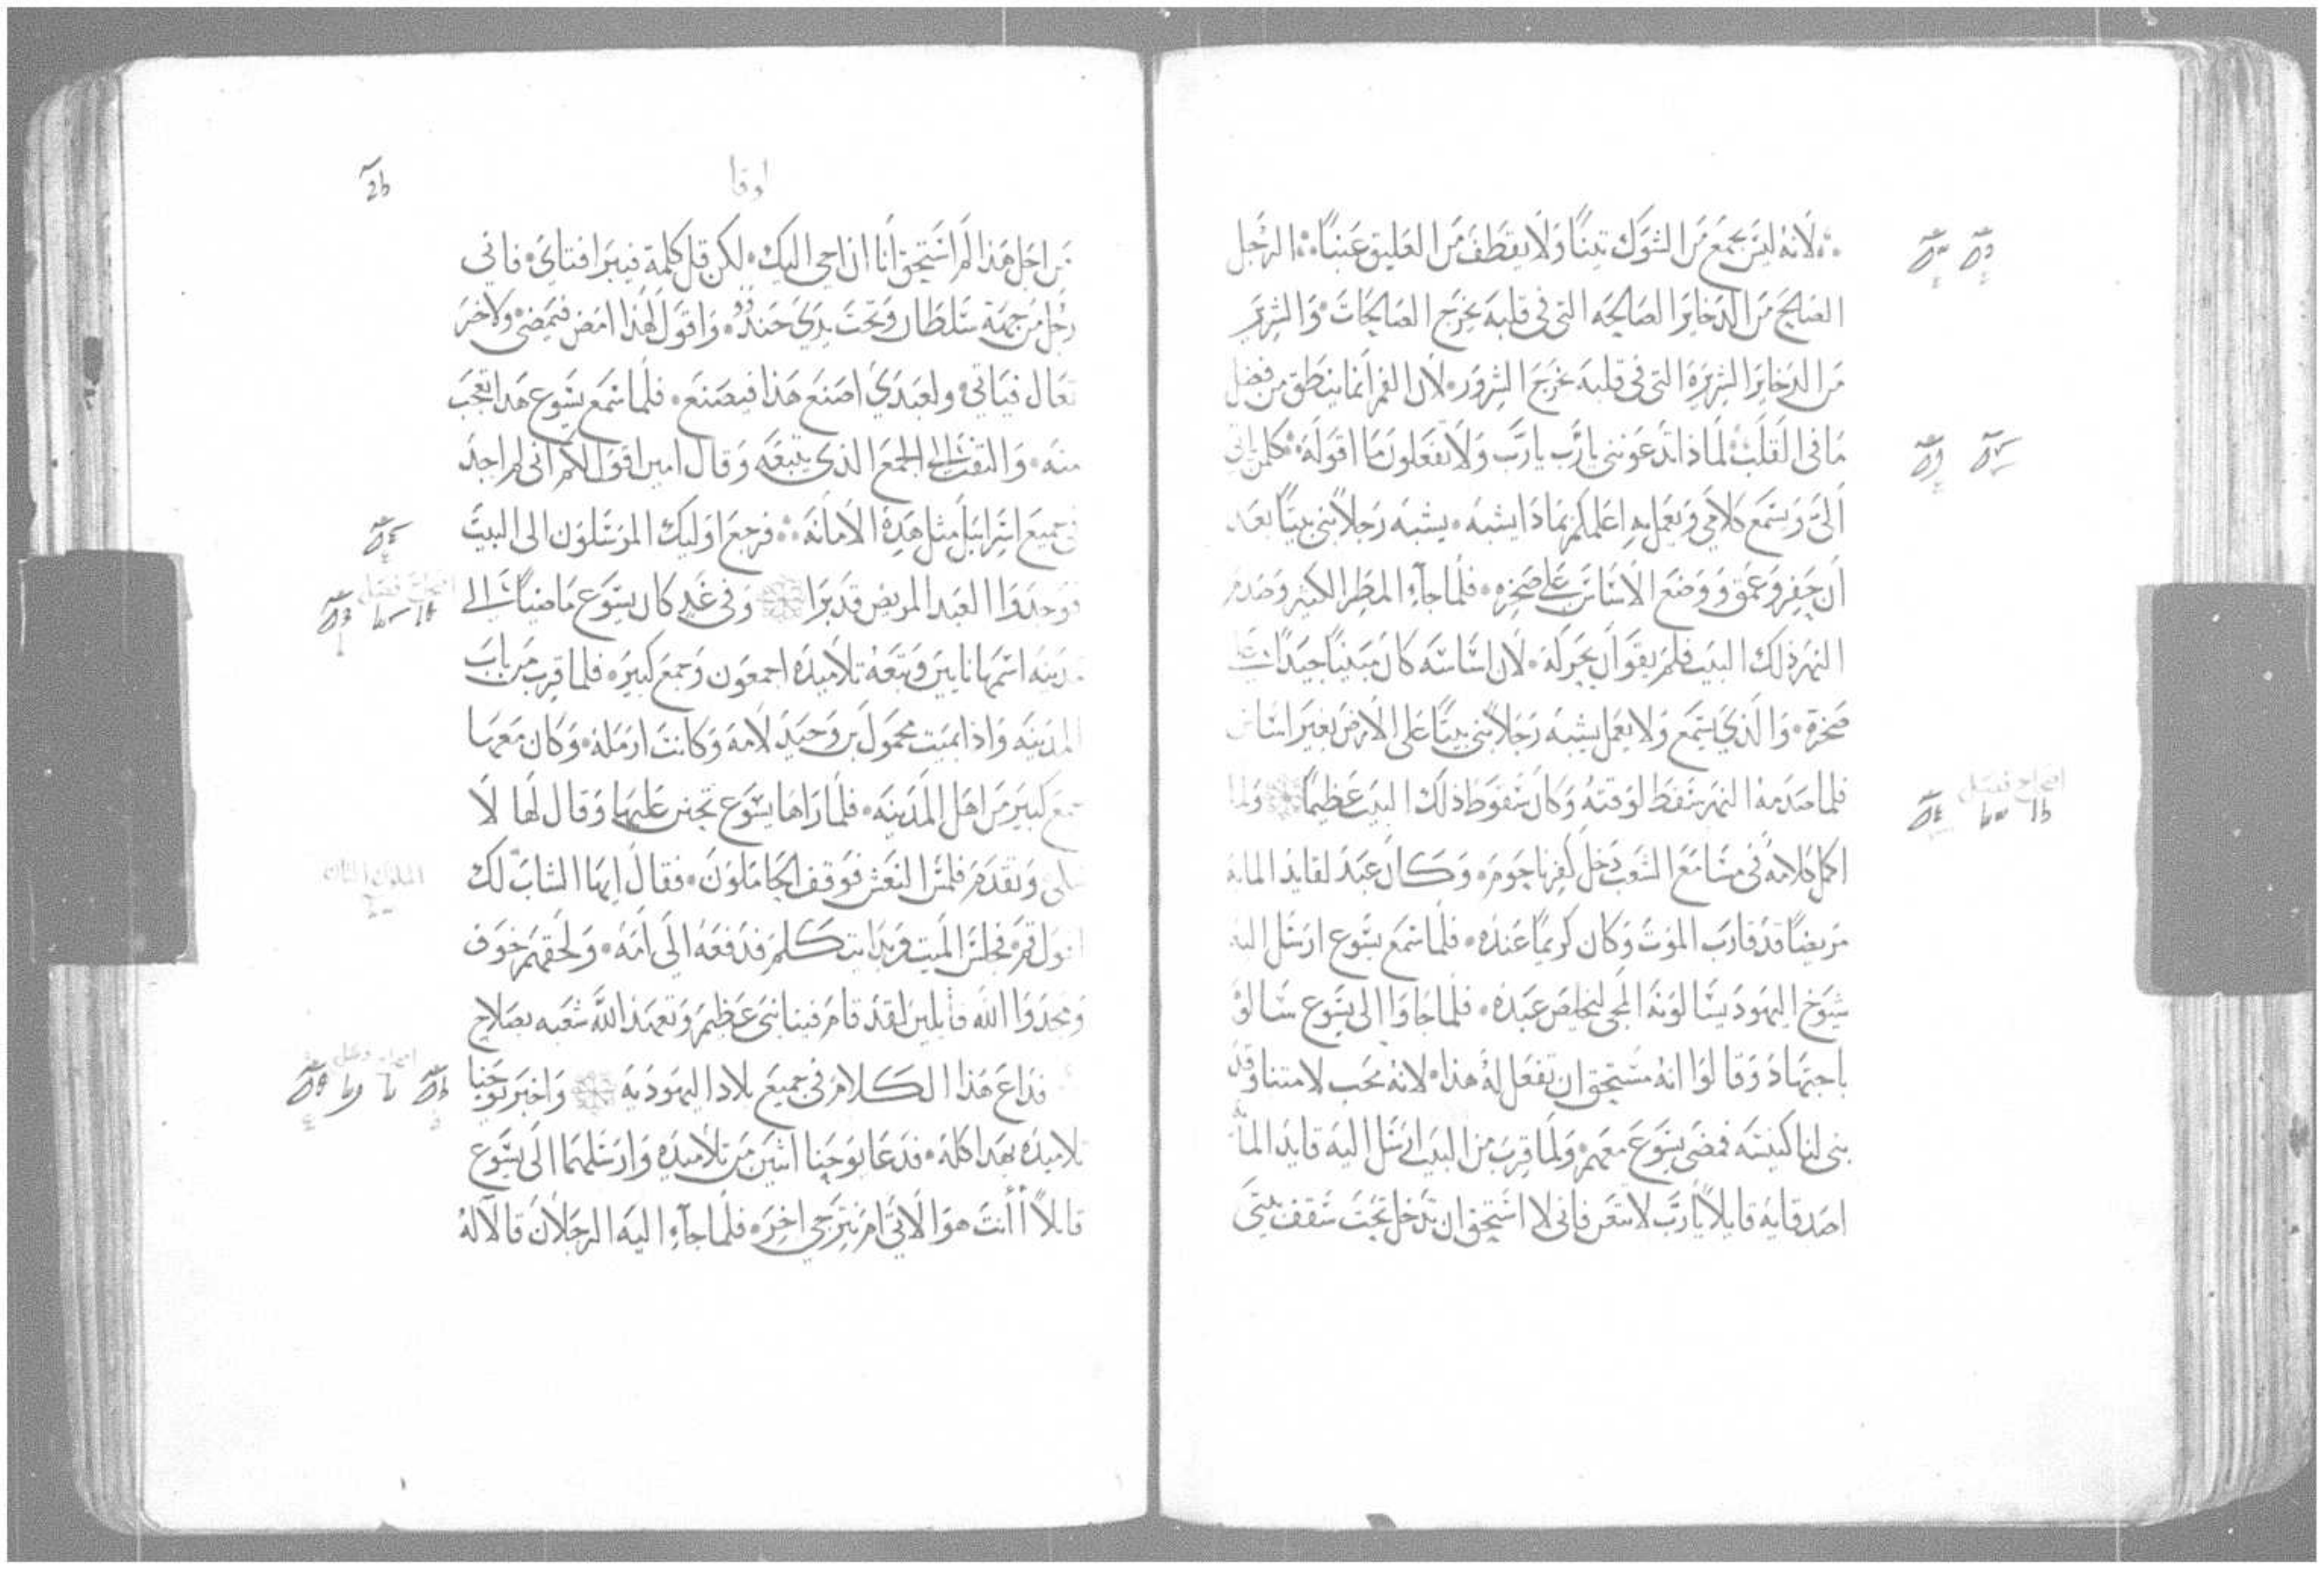 لانه ليس يجمع من الشوك تينًا ولا يقطف من العليق عنبًا الرجل
الصالح من الدخاير الصالحه التي في قلبه يخرج الصالحات والشرير
من الدخاير الشريرة التي في قلبه يخرج الشرور لان الفم انما ينطق من فضل
ما في القلب لماذا تدعونني يارب يارب ولا تفعلون ما اقوله كلمن اتى
الىّ وسمع كلامي وعمل به اعلمكم بماذا يشبه يشبه رجلاً بنى بيتًا بعد
ان حفر وعمق ووضع الاساس على صخره فلما جآء المطر الكثير وصدم
النهر ذلك البيت فلم يقو ان يحركه لان اساسه كان مبنيًا جيدًا على
صخرة والذي يسمع ولا يعمل يشبه رجلاً بنى بيتًا على الارض بغير اساس
فلما صدمه النهر سقط لوقته وكان سقوط ذلك البيت عظيمًا ولما
اكمل كلامه في مسامع الشعب دخل كفرناحوم وكان عبد لقايد المايه
مريضًا قد قارب الموت وكان كريمًا عنده فلما سمع يسوع ارسل اليه
شيوخ اليهود يسالونه المجي ليخلص عبده فلما جاوا الى يسوع سالوه
باجتهاد وقالوا انه مستحق ان تفعل له هذا لانه محب لامتنا وقد
بنى لنا كنيسه فمضى يسوع معهم ولما قرب من البيت ارسل اليه قايد المايه
اصدقايه قايلاً يارب لا تتعن فاني لا استحق ان تدخل تحت سقف بيتي
لوقا
من اجل هذا لم استحق انا ان اجي اليك لكن قل كلمة فيبرا فتاي فاني
رجل من جهة سلطان وتحت يدي جند واقول لهذا امض فيمضي ولاخر
تعال فياتي ولعبدي اصنع هذا فيصنع فلما سمع يسوع هذا تعجب
منه والتفت الى الجمع الذي يتبعه وقال امين اقول لكم اني لم اجد
في جميع اسرايل مثل هذه الامانه فرجع اوليك المرسلون الى البيت
فوجدوا العبد المريض قد برا وفي غد كان يسوع ماضيًا الى
مدينه اسمها نايين وتبعه تلاميذه اجمعون وجمع كبير فلما قرب من باب
المدينه واذا بميت محمول بن وحيد لامه وكانت ارمله وكان معها
جمع كبير من اهل المدينه فلما راها يسوع تحنن عليها وقال لها لا
تبكي وتقدم فلمس النعش فوقف الحاملون فقال ايها الشاب لك
اقول قم فجلس الميت وبدا يتكلم فدفعه الى امه ولحقهم خوف
ومجدوا الله قايلين لقد قام فينا نبي عظيم وتعهد الله شعبه بصلاح
فداع هذا الكلام في جميع بلاد اليهوديه واخبر يوحنا
تلاميذه بهذا كله فدعا يوحنا اثنين من تلاميذه وارسلهما الى يسوع
قايلاً أأنت هو الاتي ام نترجى اخر فلما جآء اليه الرجلان قالا له